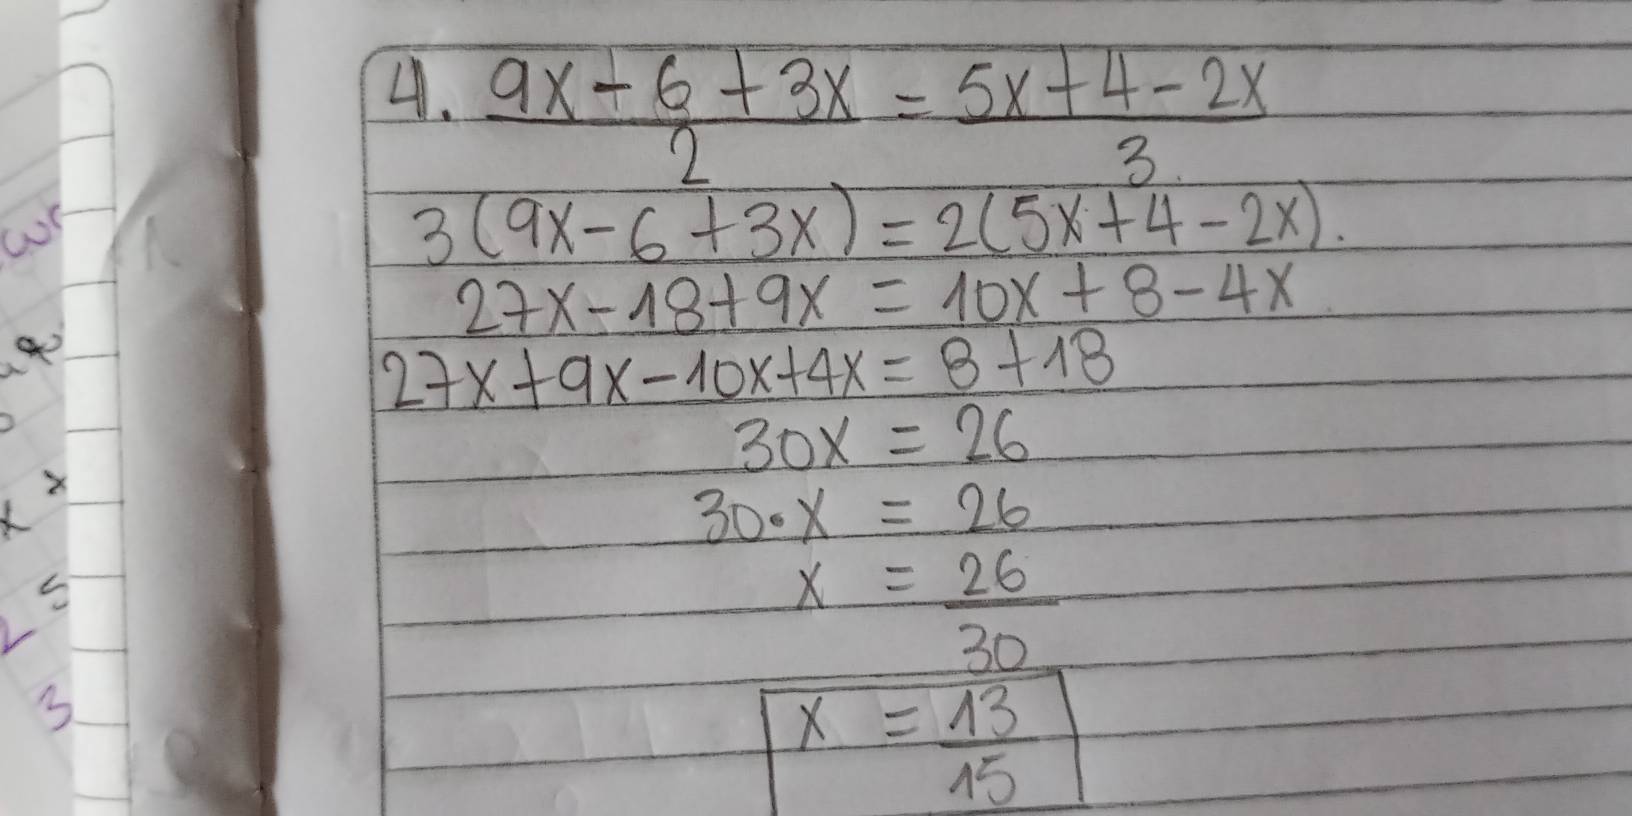 4. 9x-6+3x = 5x+4-2x
2 3
3(9x-6+3x) = 2(5x+4-2x).
27x-18+9x = 10x+8-4x
27x+9x-10x+4x = 8+18
30x = 26
30·x = 26
x = 26
30
x = 13
15